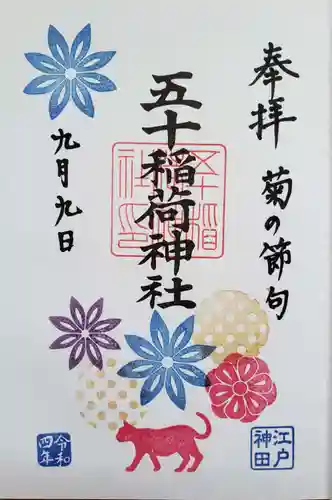 奉拝 菊の節句
五十稲荷神社
九月九日
江戸
神田
令和
四年